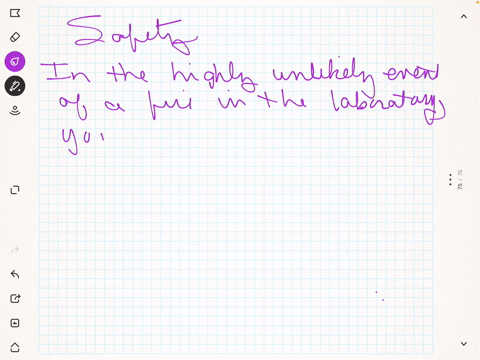 Safety
In the highly unlikely event
of a fire in the laboratory,
you
75 / 75